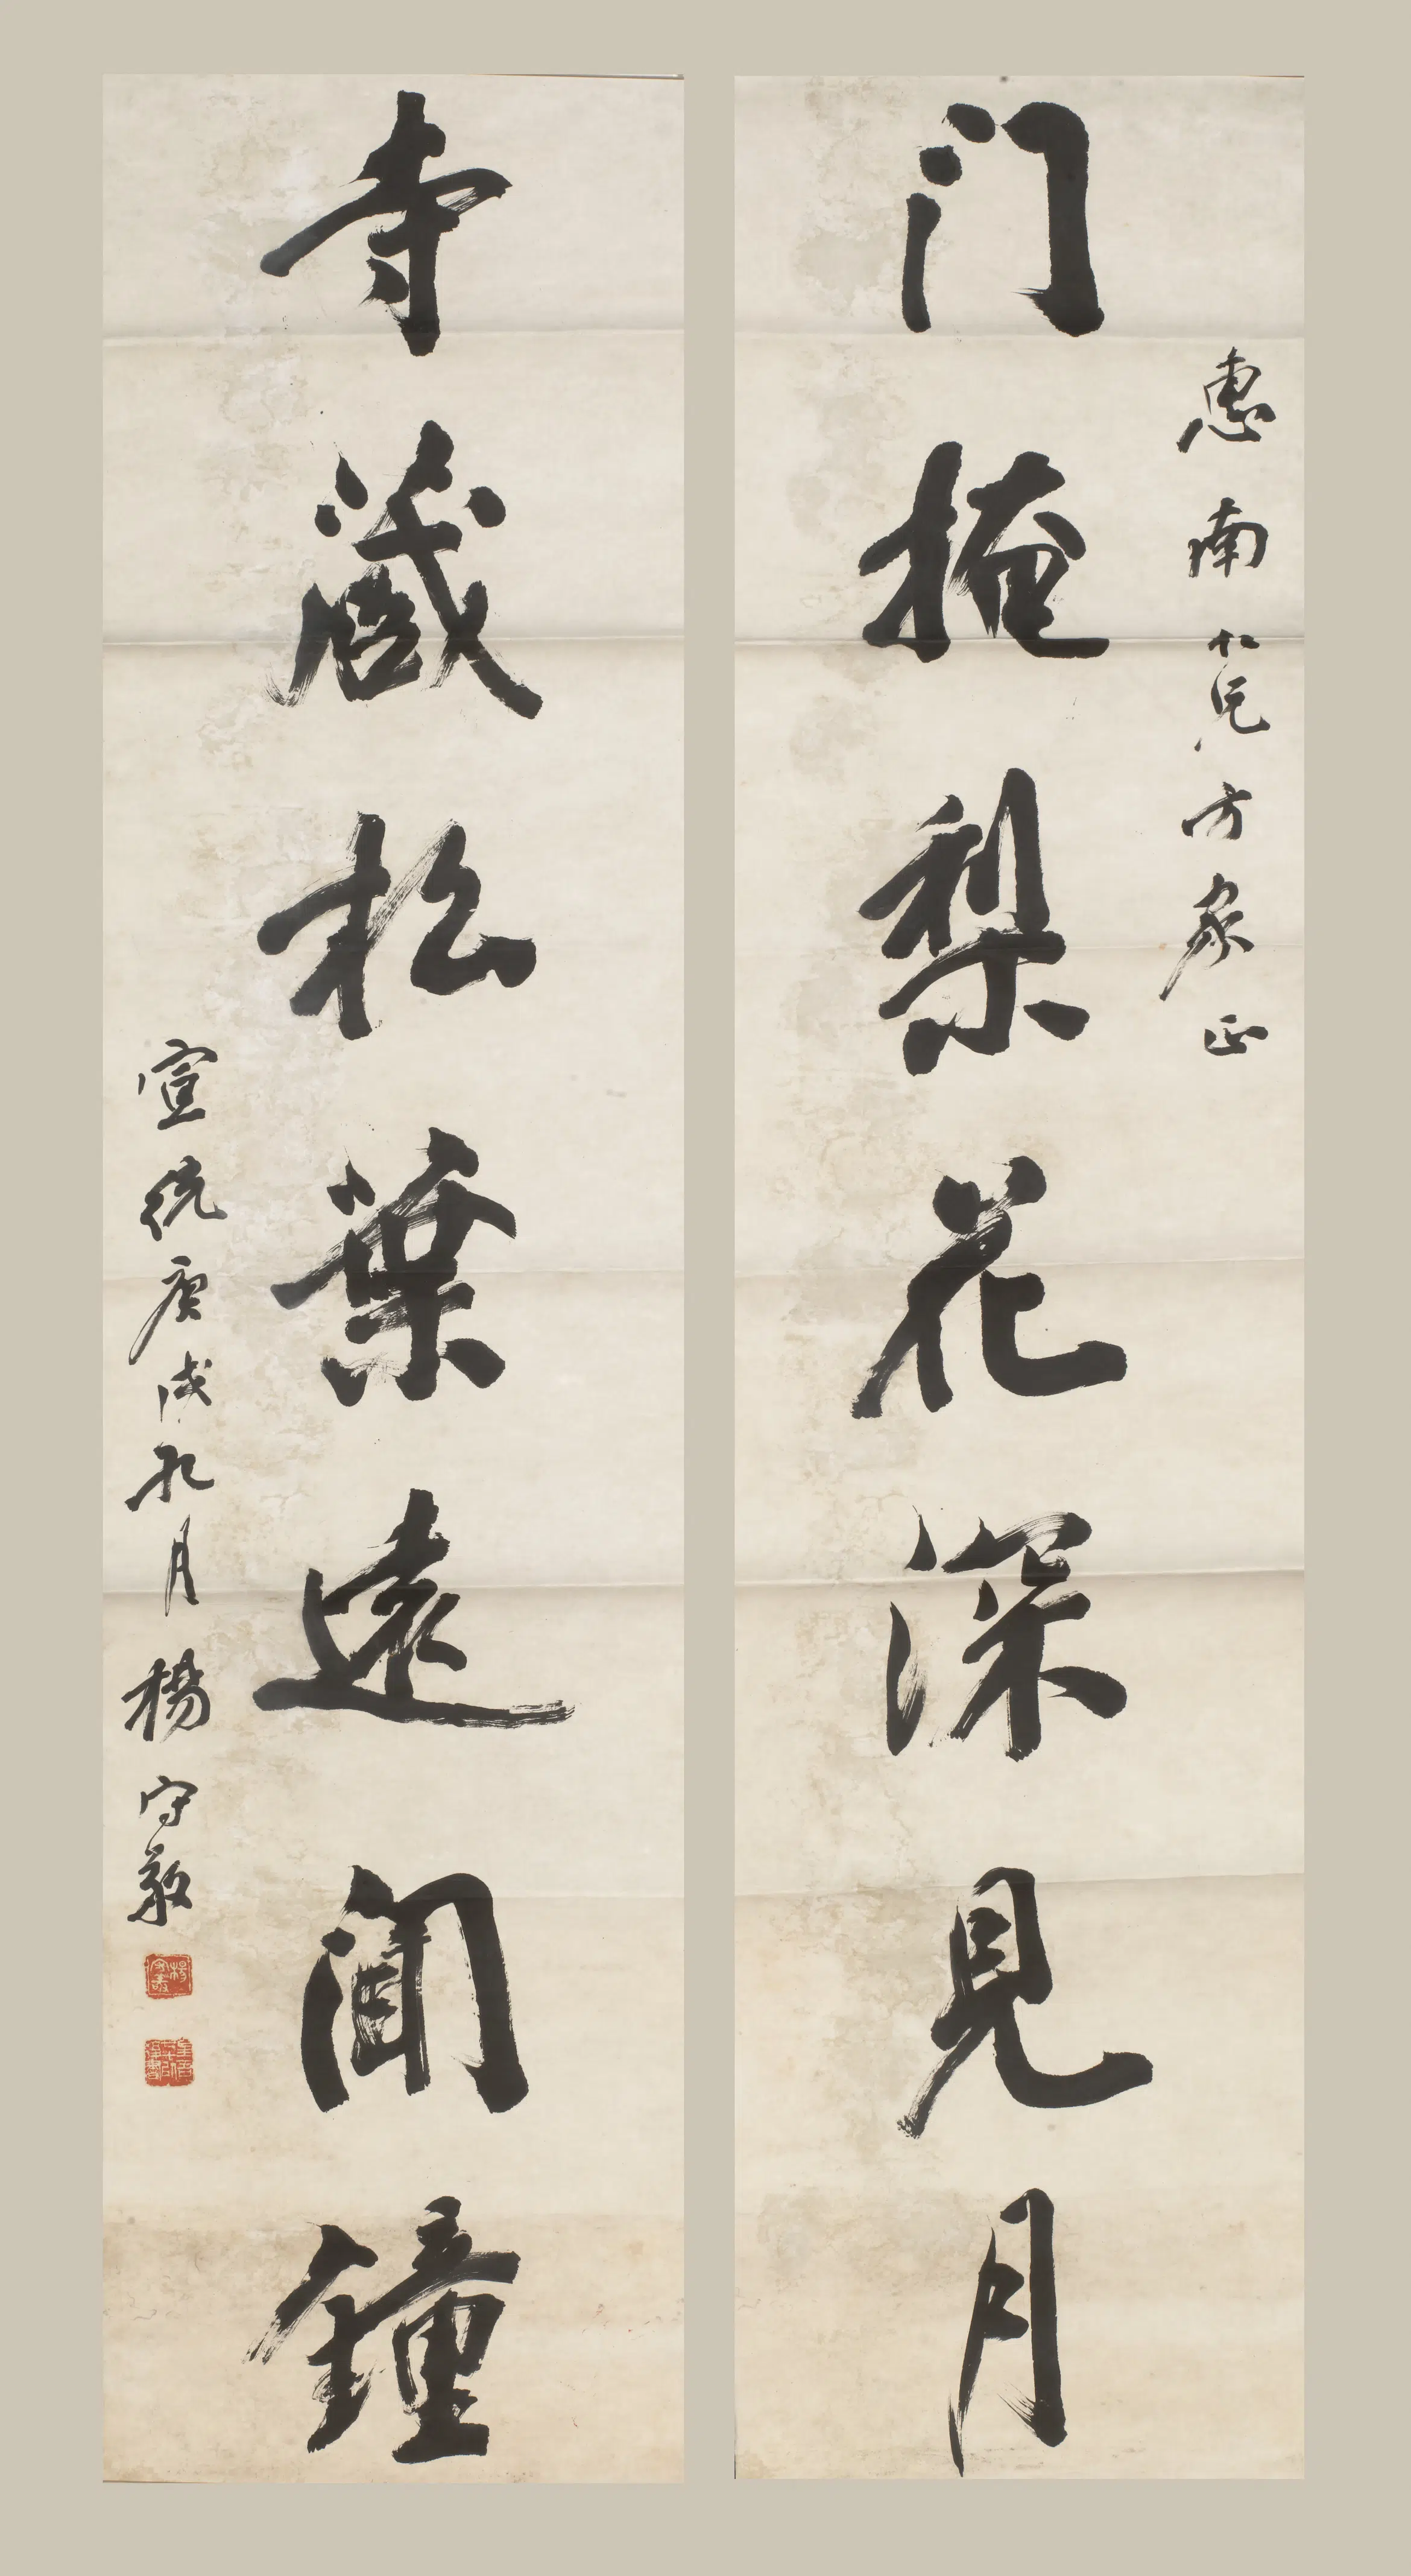 惠南仁兄方家正
门掩梨花深見月
寺藏松葉遠聞鐘
宣統庚戌九月楊守敬
楊守敬